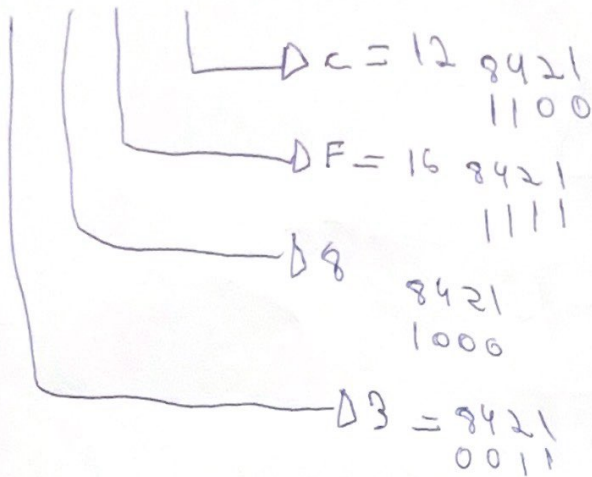 c = 12 8421
1100
F = 16 8421
1111
8
8421
1000
3 = 8421
0011